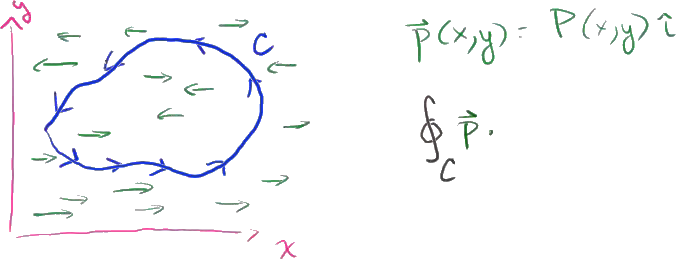 y
C
x
p⃗(x,y) = P(x,y) î
∮_C p⃗ ·